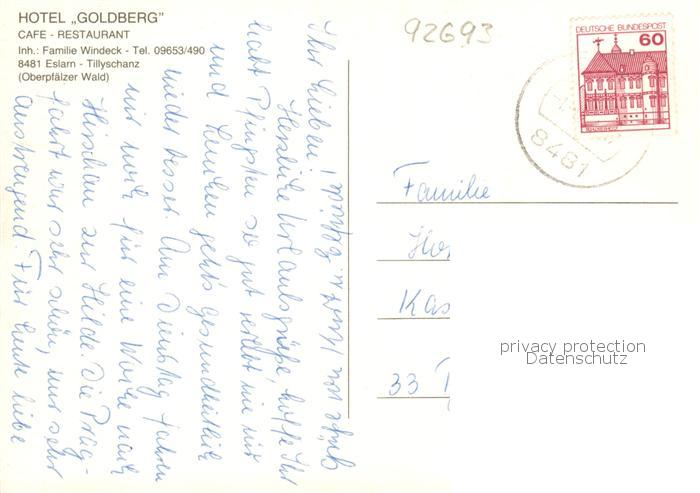 HOTEL „GOLDBERG"
CAFE - RESTAURANT
Inh.: Familie Windeck - Tel. 09653/490
8481 Eslarn - Tillyschanz
(Oberpfälzer Wald)
92693
DEUTSCHE BUNDESPOST
60
8481
Ihr Lieben!
Herzliche Urlaubsgrüße hoffe Ihr
habt Pfingsten so gut verlebt wie wir
und Euch geht's gesundheitlich
wieder besser. Am Dienstag fahren
wir noch für eine Woche nach
Hirschau zur Hilde. Die Prag-
fahrt war sehr schön, nur sehr
anstrengend. Für heute liebe
Grüße von
Familie
Ho
Kas
33 T
privacy protection
Datenschutz